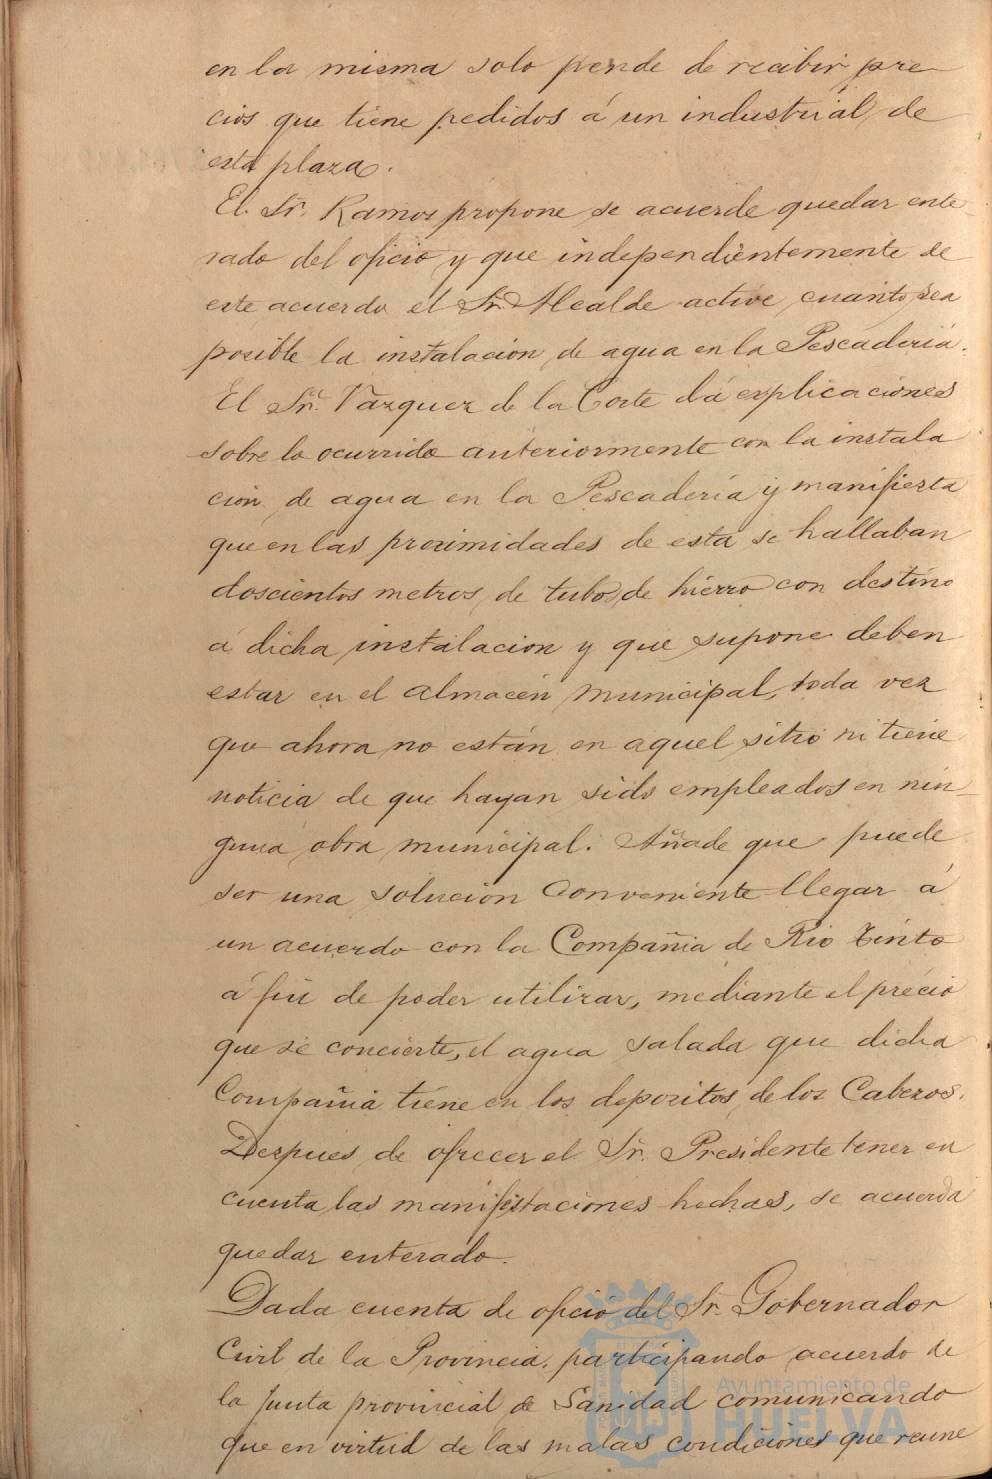 en la misma solo pende de recibir pre
cios que tiene pedidos á un industrial de
esta plaza.
El Sr. Ramos propone se acuerde quedar ente
rado del oficio y que independientemente de
este acuerdo el Sr. Alcalde active cuanto sea
posible la instalación de agua en la Pescadería.
El Sr. Vázquez de la Corte dá explicaciones
sobre lo ocurrido anteriormente con la instala
ción de agua en la Pescadería y manifiesta
que en las proximidades de esta se hallaban
doscientos metros de tubos de hierro con destino
á dicha instalacion y que supone deben
estar en el almacén municipal, toda vez
que ahora no están en aquel sitio ni tiene
noticia de que hayan sido empleados en nin-
guna obra municipal. Añade que puede
ser una solución conveniente llegar á
un acuerdo con la Compañia de Rio Tinto
á fin de poder utilizar, mediante el précio
que se concierte, el agua salada que dicha
Compañia tiene en los depositos de los Cabezos.
Despues de ofrecer el Sr. Presidente tener en
cuenta las manifestaciones hechas, se acuerda
quedar enterado.
Dada cuenta de oficio del Sr. Gobernador
Civil de la Provincia, participando acuerdo de
la Junta provincial de Sanidad comunicando
que en virtud de las malas condiciones que reune
Ayuntamiento de
HUELVA